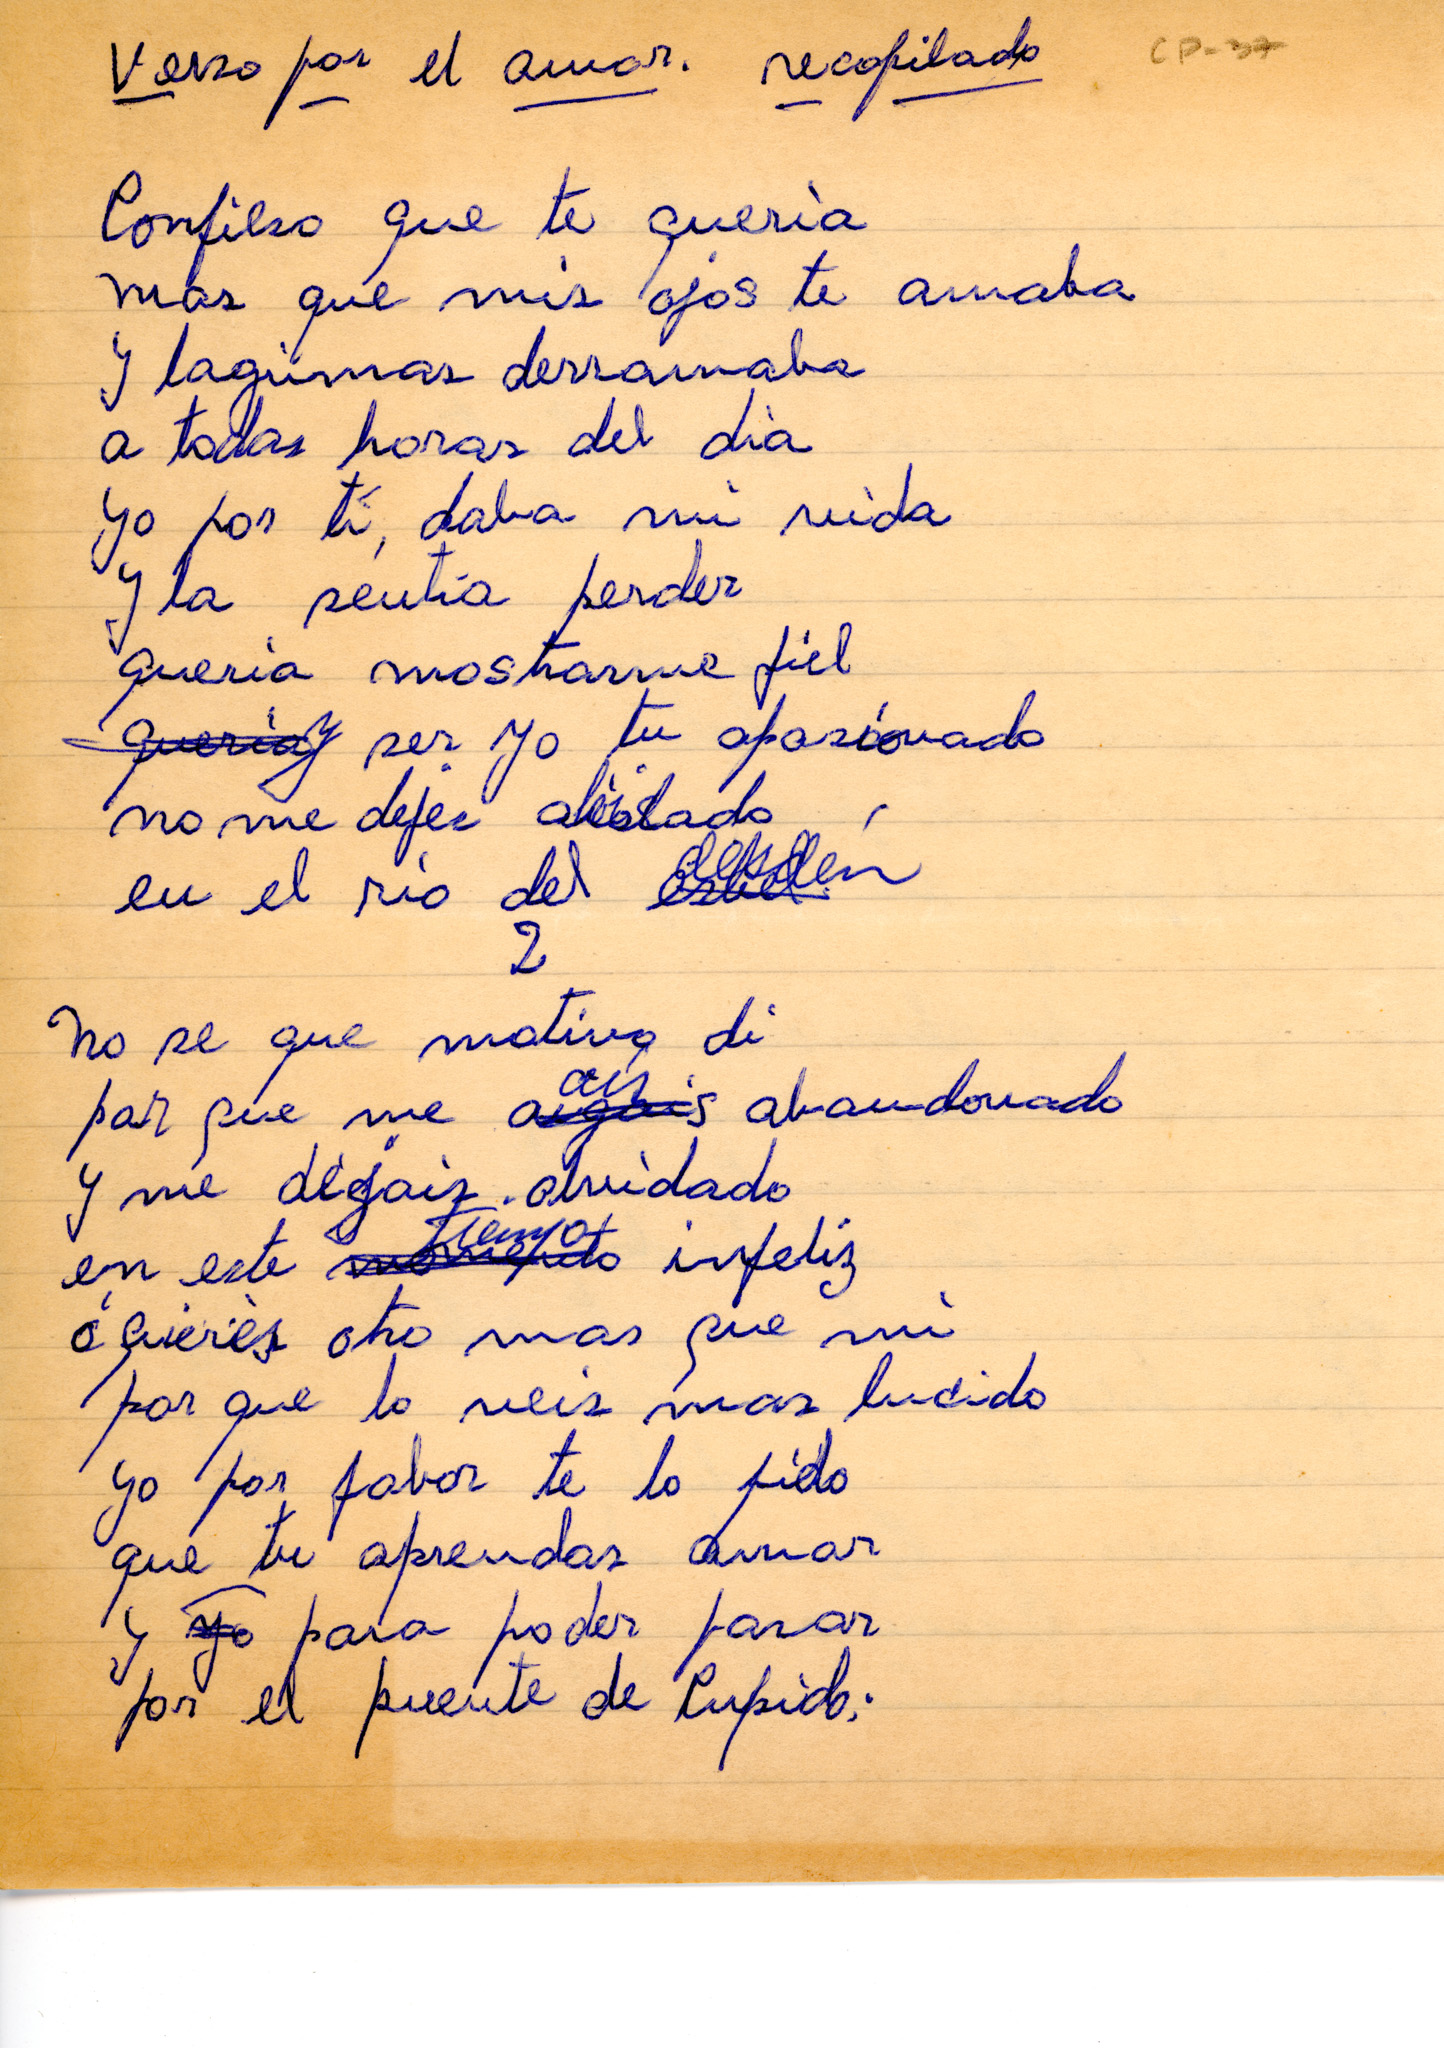 Verso por el amor. recopilado CP-37
Confieso que te queria
mas que mis ojos te amaba
y lagrimas derramaba
a todas horas del dia
yo por tí, daba mi vida
y la sentia perder
queria mostrarme fiel
queria y ser yo tu apasionado
no me dejes
en el rio del desdén
2
No se que motivo di
por que me abandonado
y me dejais olvidado
tiempo
en este momento infeliz
ó quieres otro mas que mi
por que lo veis mas lucido
yo por fabor te lo pido
que tu aprendas amar
y yo para poder pasar
por el puente de Cupido.